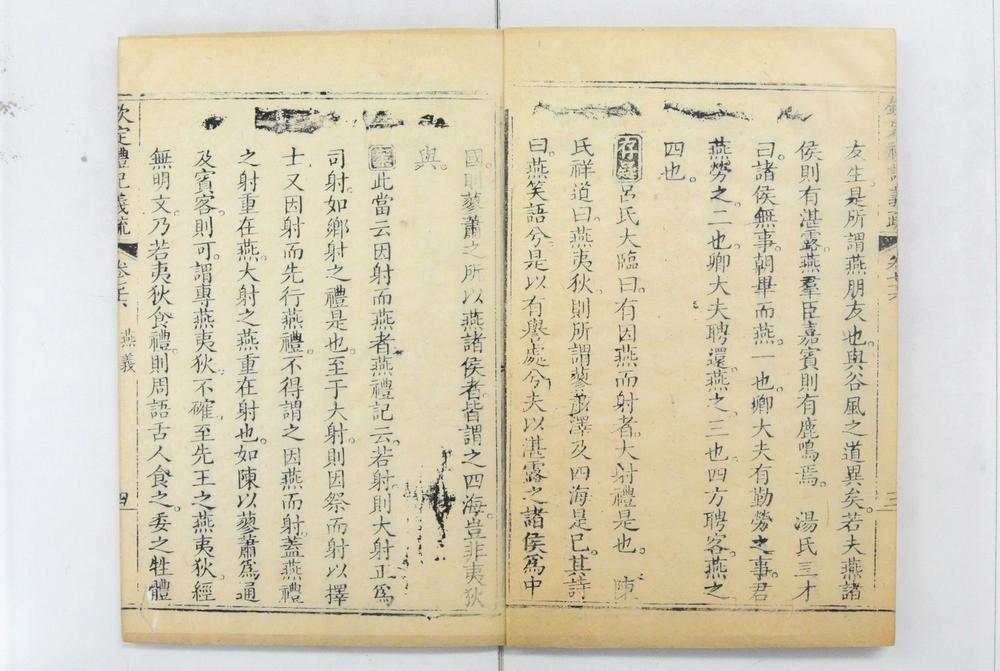 友生。是所謂燕朋友也。與谷風之道異矣。若夫燕諸
侯則有湛露。燕羣臣嘉賓則有鹿鳴焉。 湯氏三才
曰。諸侯無事。朝畢而燕。一也。卿大夫有勤勞之事。君
燕勞之。二也。卿大夫聘還。燕之。三也。四方聘客。燕之。
四也。
存疑 呂氏大臨曰。有因燕而射者。大射禮是也。 陳
氏祥道曰。燕夷狄。則所謂蓼蕭澤及四海是已。其詩
曰。燕笑語兮。是以有譽處兮。夫以湛露之諸侯為中
國。則蓼蕭之所以燕諸侯者。皆謂之四海。豈非夷狄
與。
案 此當云因射而燕者。燕禮記云。若射。則大射正為
司射。如鄉射之禮是也。至于大射。則因祭而射以擇
士。又因射而先行燕禮。不得謂之因燕而射。蓋燕禮
之射重在燕。大射之燕重在射也。如陳以蓼蕭為通
及賓客則可。謂專燕夷狄。不確。至先王之燕夷狄。經
無明文。乃若夷狄食禮。則周語舌人食之。委之牲體
欽定禮記義疏 卷七六 燕義
四
三